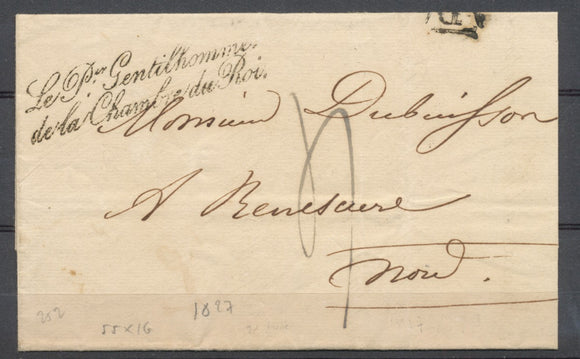 Le P.er Gentilhomme
de la Chambre du Roi.
Monsieur Dubuisson
A Renescure
Nord.
252
55x16
1827